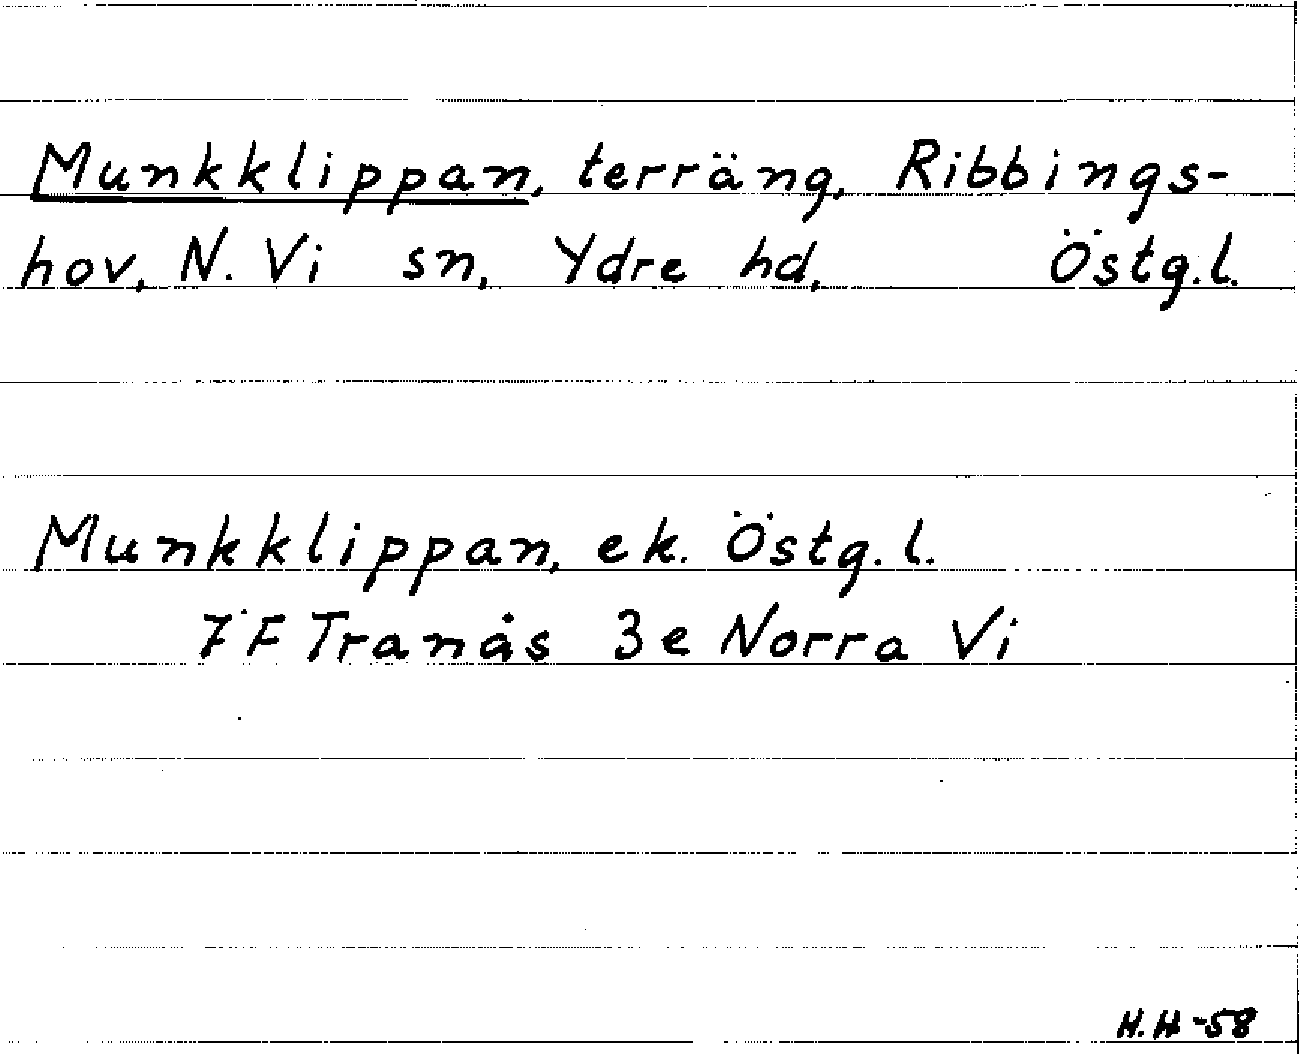 Munkklippan, terräng, Ribbings-
hov, N. Vi sn, Ydre hd, Östg.l.
Munkklippan, ek. Östg.l.
7F Tranås 3e Norra Vi
H.H-58